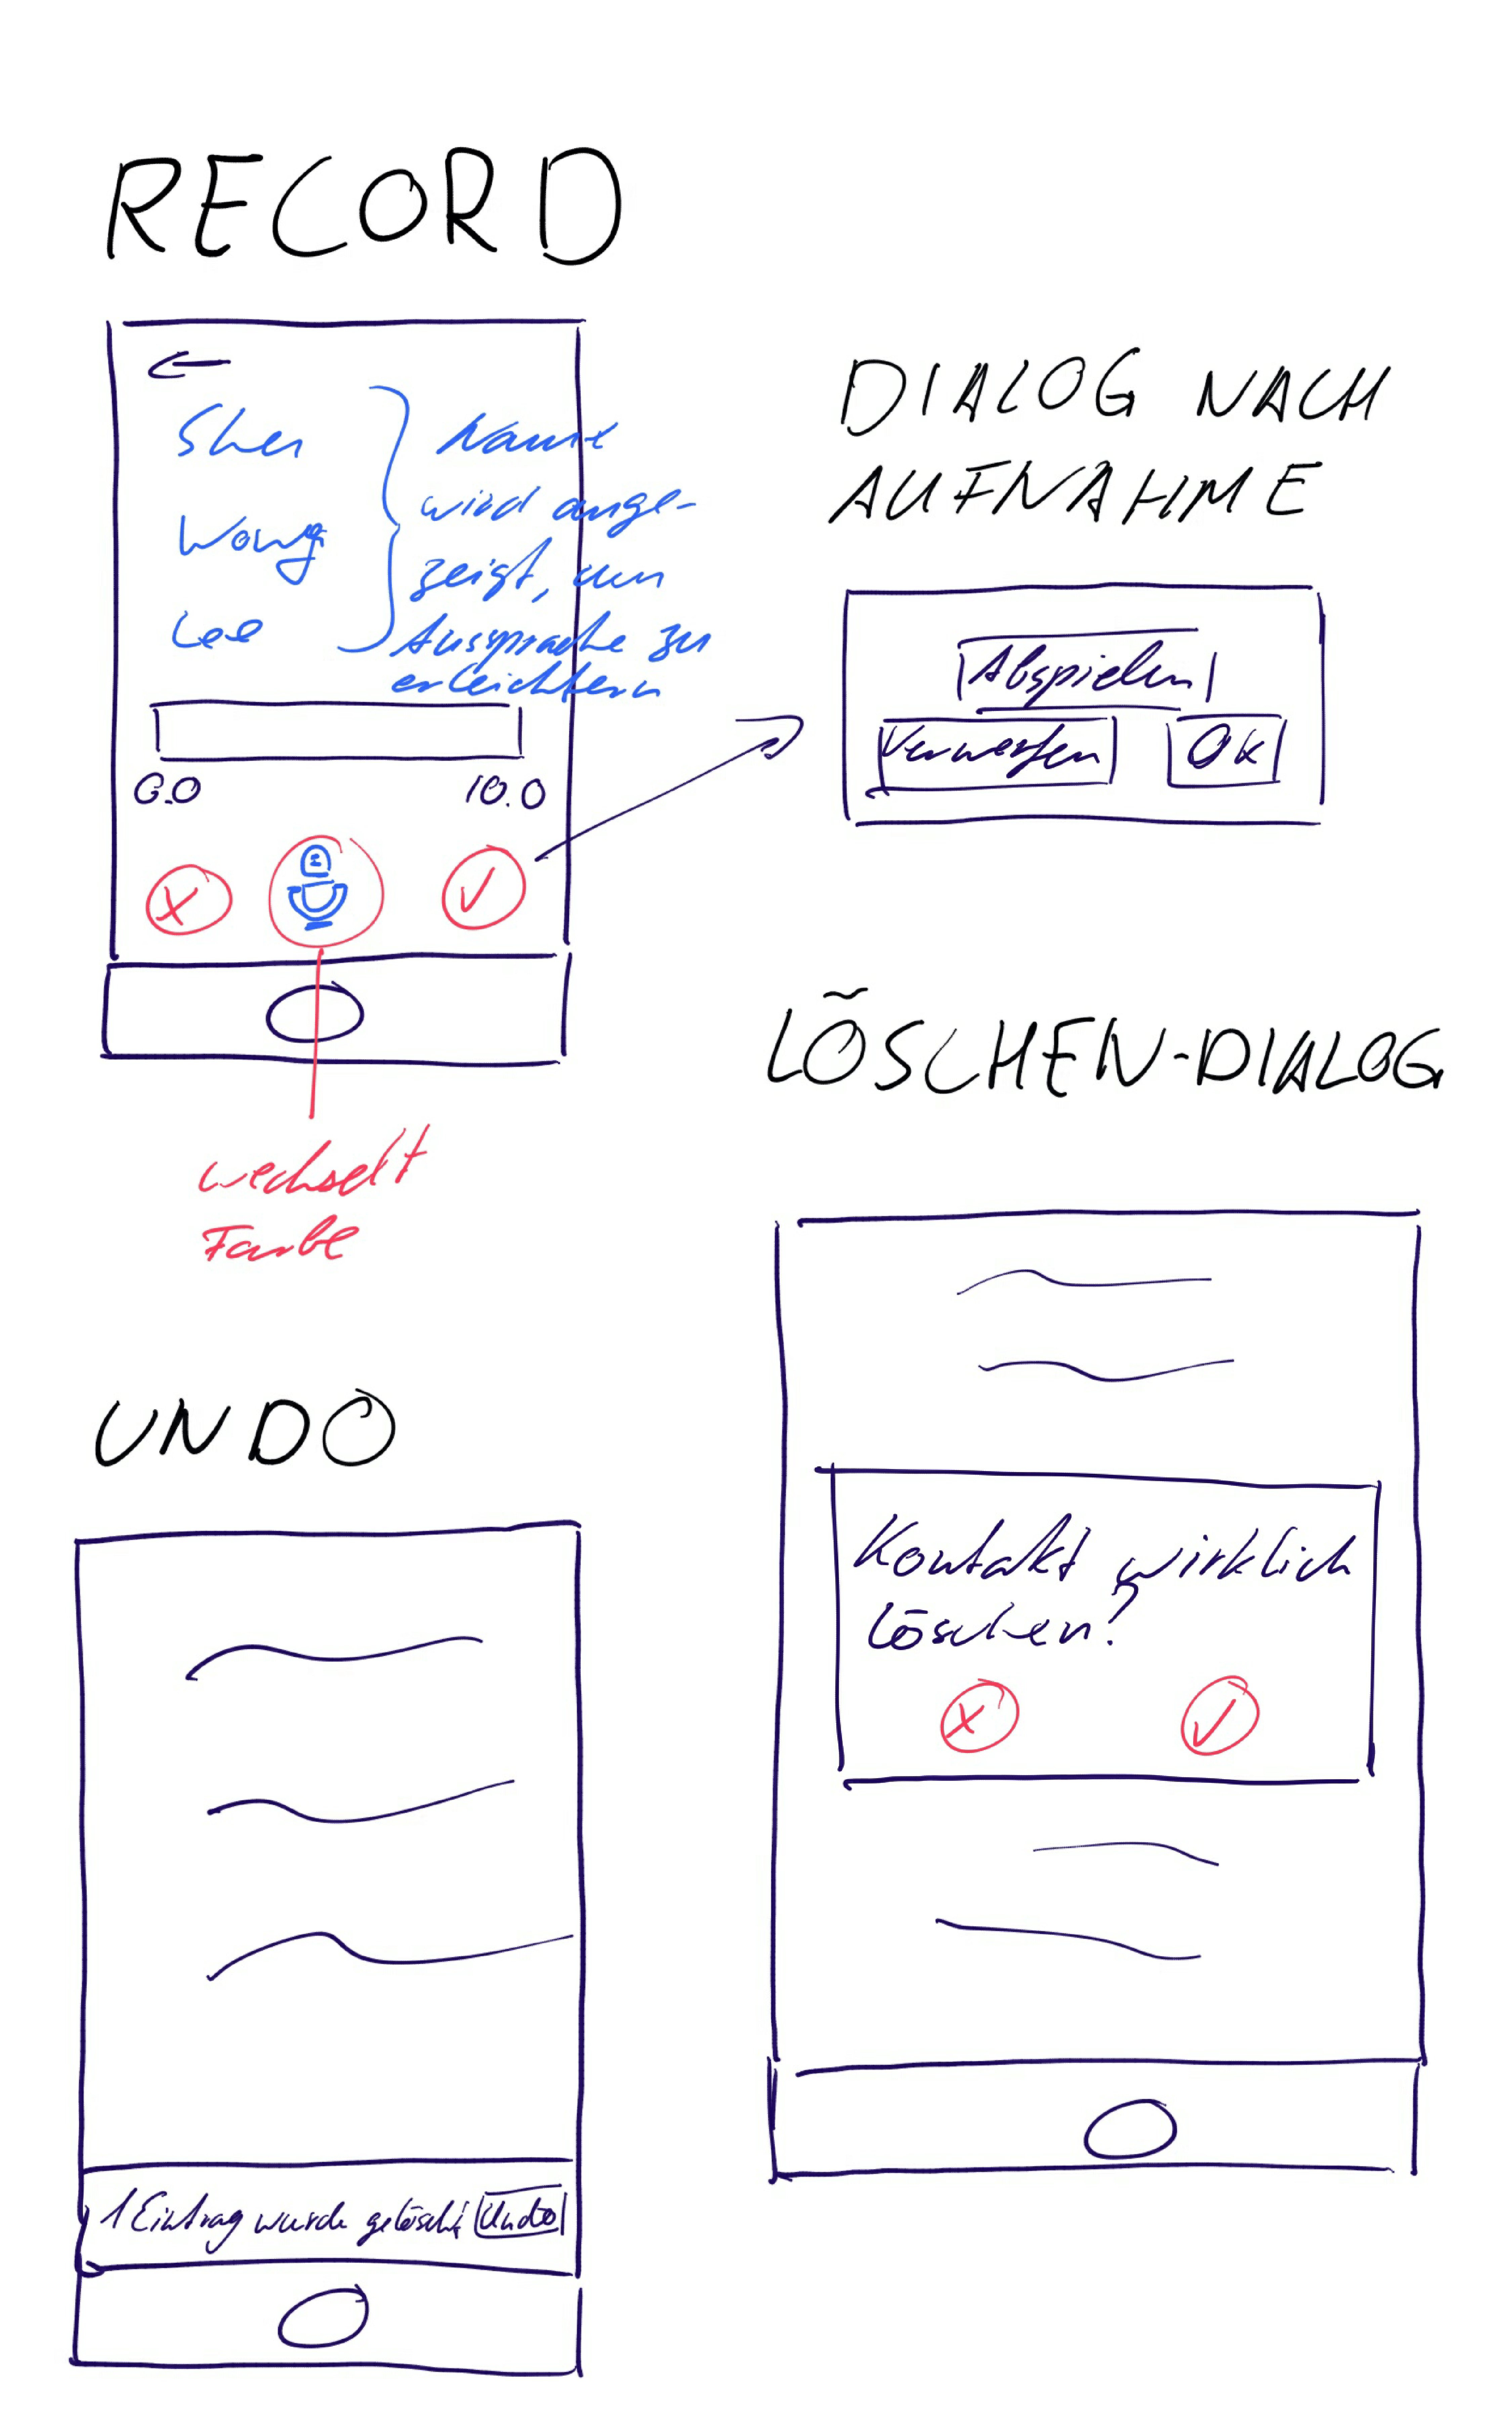 RECORD
Shen
Wong
Lee
Name
wird ange-
zeigt, um
Aussprache zu
erleichtern
0.0
10.0
wechselt
Farbe
DIALOG NACH
AUFNAHME
Abspielen
Verwerfen
OK
LÖSCHEN-DIALOG
Kontakt wirklich
löschen?
UNDO
1 Eintrag wurde gelöscht Undo